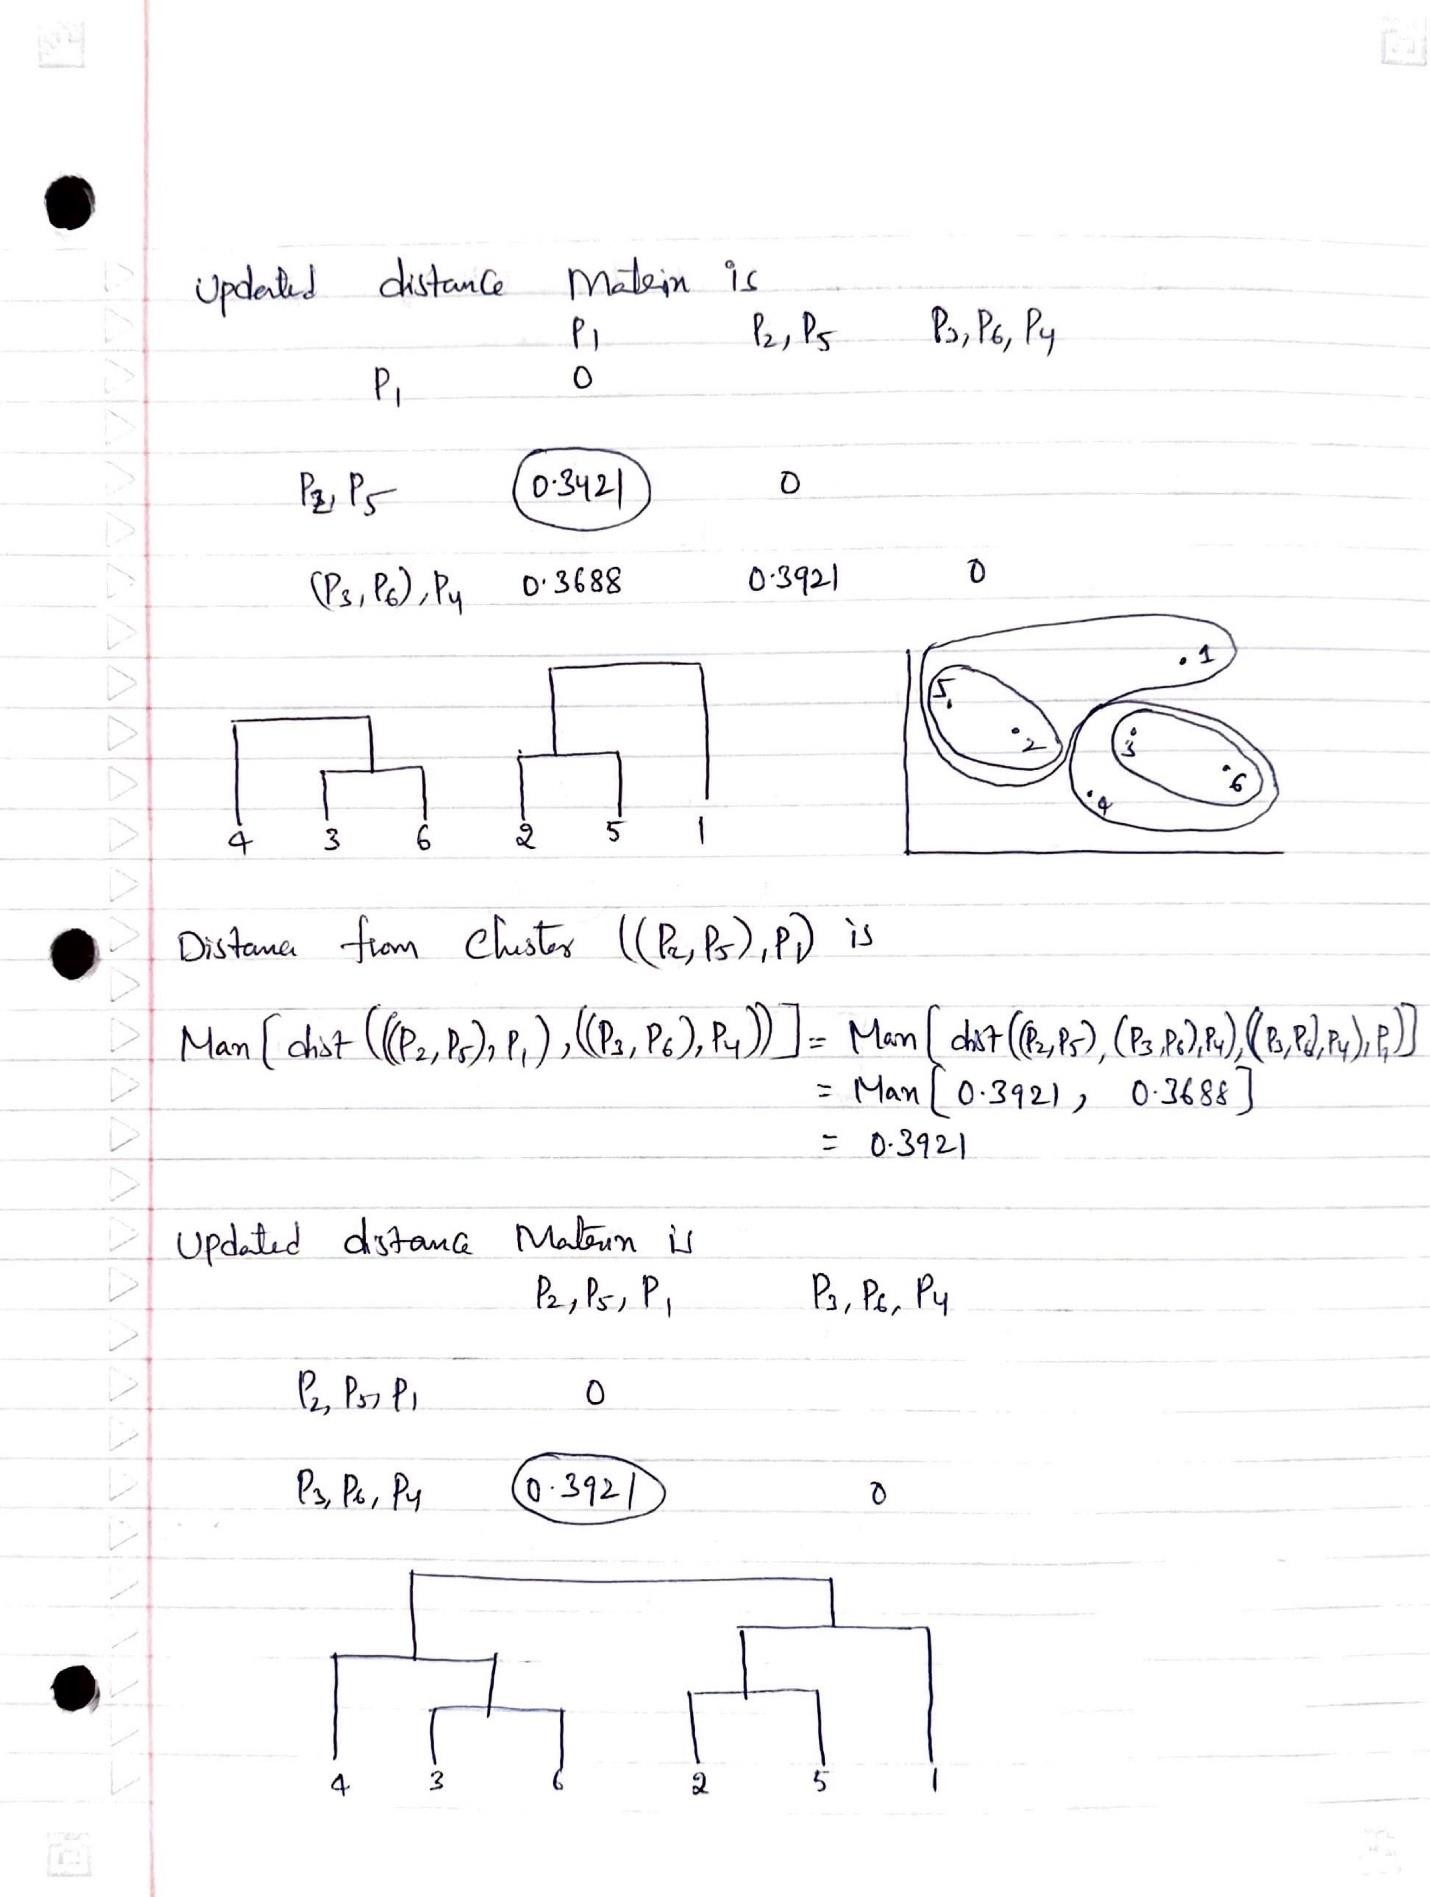 Updated distance Matrix is
P1 P2, P5 P3, P6, P4
P1 0
P2, P5 0.3421 0
(P3, P6), P4 0.3688 0.3921 0
4 3 6 2 5 1
5 2 1 3 6 4
Distance from Cluster ((P2, P5), P1) is
Max [ dist (((P2, P5), P1), ((P3, P6), P4)) ] = Max [ dist ((P2, P5), (P3, P6), P4), ((P3, P6), P4), P1)]
= Max [ 0.3921, 0.3688 ]
= 0.3921
Updated distance Matrix is
P2, P5, P1 P3, P6, P4
P2, P5, P1 0
P3, P6, P4 0.3921 0
4 3 6 2 5 1